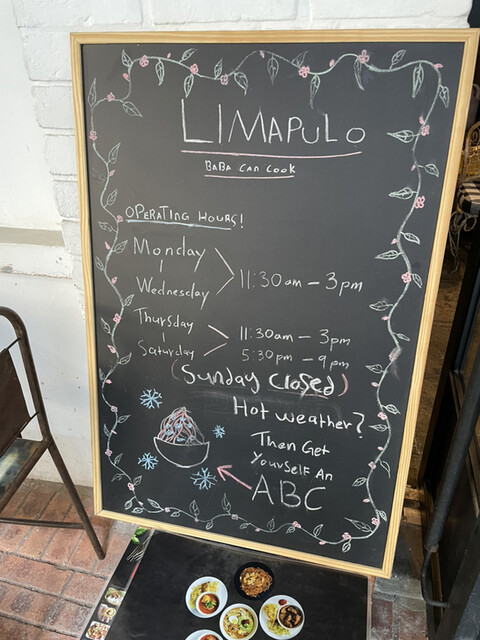 LIMAPULO
BABA CAN COOK
OPERATING HOURS!
Monday
Wednesday
11:30am – 3pm
Thursday
Saturday
11:30am – 3pm
5:30pm – 9pm
(Sunday Closed)
Hot weather?
Then Get
Yourself An
ABC